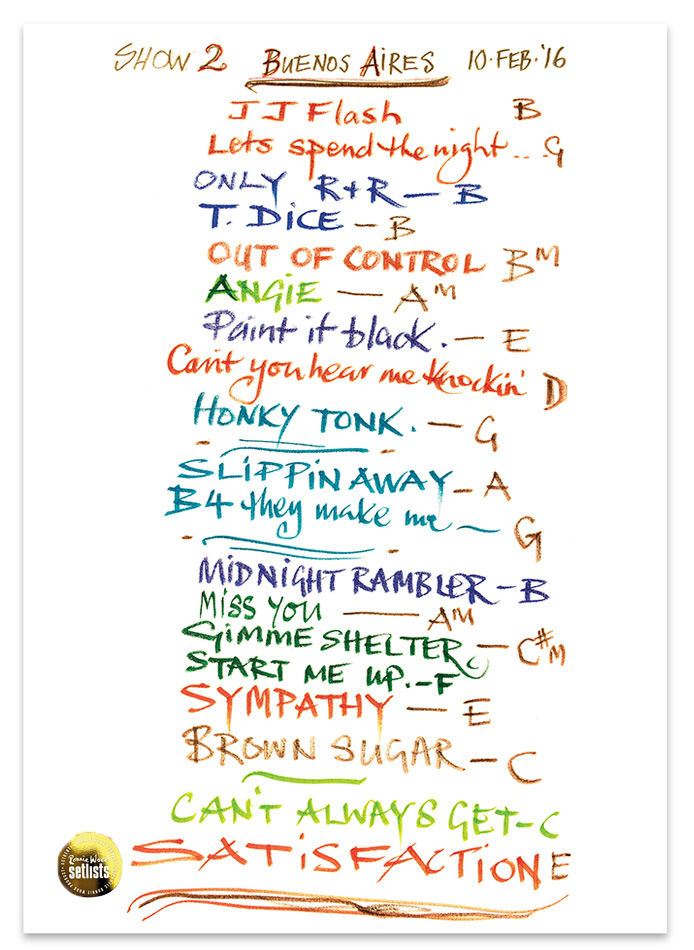 SHOW 2 BUENOS AIRES 10·FEB·'16
J J Flash B
Lets spend the night... G
ONLY R+R — B
T. DiCE — B
OUT OF CONTROL BM
ANGiE — AM
Paint it black. — E
Can't you hear me knockin' D
HONKY TONK. — G
SLiPPiN AWAY — A
B4 they make me — G
MiDNiGHT RAMBLER — B
Miss YOU — AM
GiMME SHELTER — C#M
START ME UP. — F
SYMPATHY — E
BROWN SUGAR — C
CAN'T ALWAYS GET — C
SATiSFACTiON E
Ronnie Wood
setlists